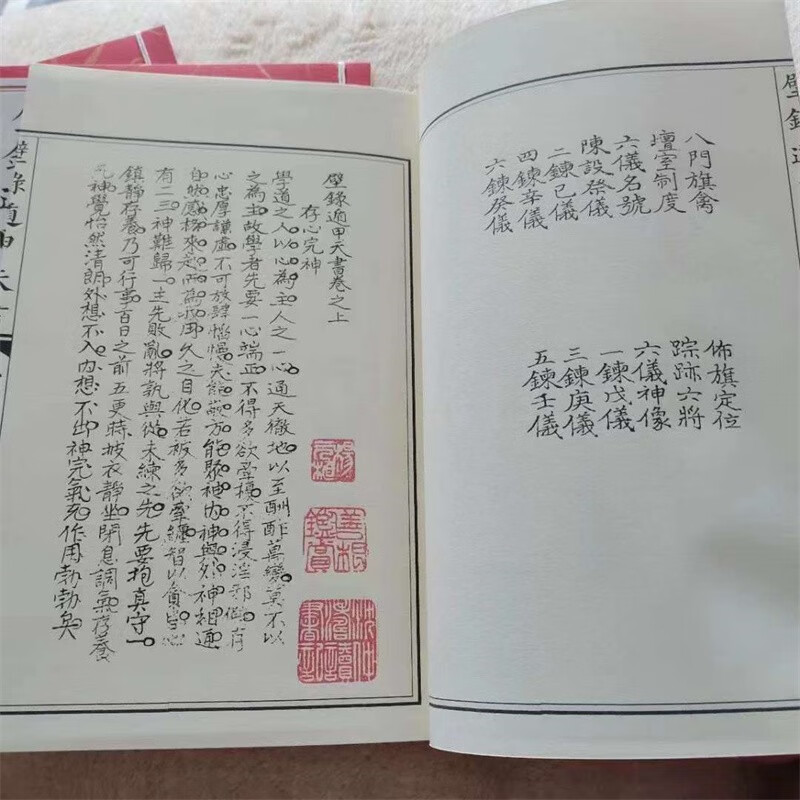 八門旗禽 佈旗定位
壇室制度 踪跡六將
六儀名號 六儀神像
陳設祭儀 一鍊戊儀
二鍊己儀 三鍊庚儀
四鍊辛儀 五鍊壬儀
六鍊癸儀
壁錄遁甲天書卷之上
存心完神
學道之人以心為主人之一心通天徹地以至酬酢萬變莫不以
之為主故學者先要一心端正不得多欲擾不得浸淫邪僻存
心忠厚謙虛不可放肆惰慢夫能敬方能聚神內神與外神相通
自然感格來為用久之自化若多欲牽纏智以貪心
有二三神難歸一主先敗亂將孰與從未練之先先要抱真守一
鎮靜存養乃可行事百日之前五更時披衣静坐閉息調氣存養
元神覺怡然清朗外想不入內想不出神完氣死作用勃勃矣